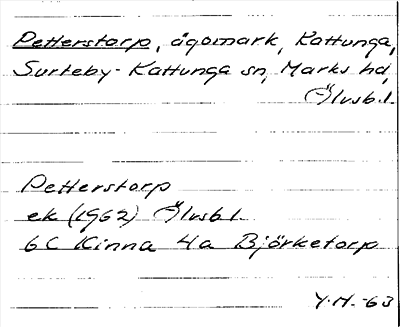 Petterstorp, ägomark, Kattunga,
Surteby-Kattunga sn, Marks hd,
Älvsb.l.
Petterstorp
ek (1962) Älvsb l.
6C Kinna 4a Björketorp
Y.H.-63